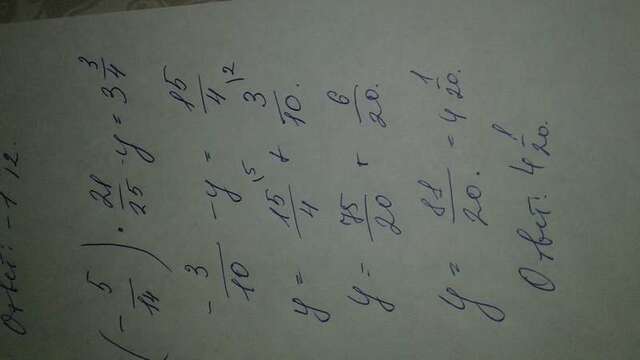 Ответ: -1,2.
(- 5/14) · 21/25 - y = 3 3/4
- 3/10 - y = 15/4
y = 15/4 \5 + 3/10 \2.
y = 75/20 + 6/20.
y = 81/20. = 4 1/20.
Ответ: 4 1/20.